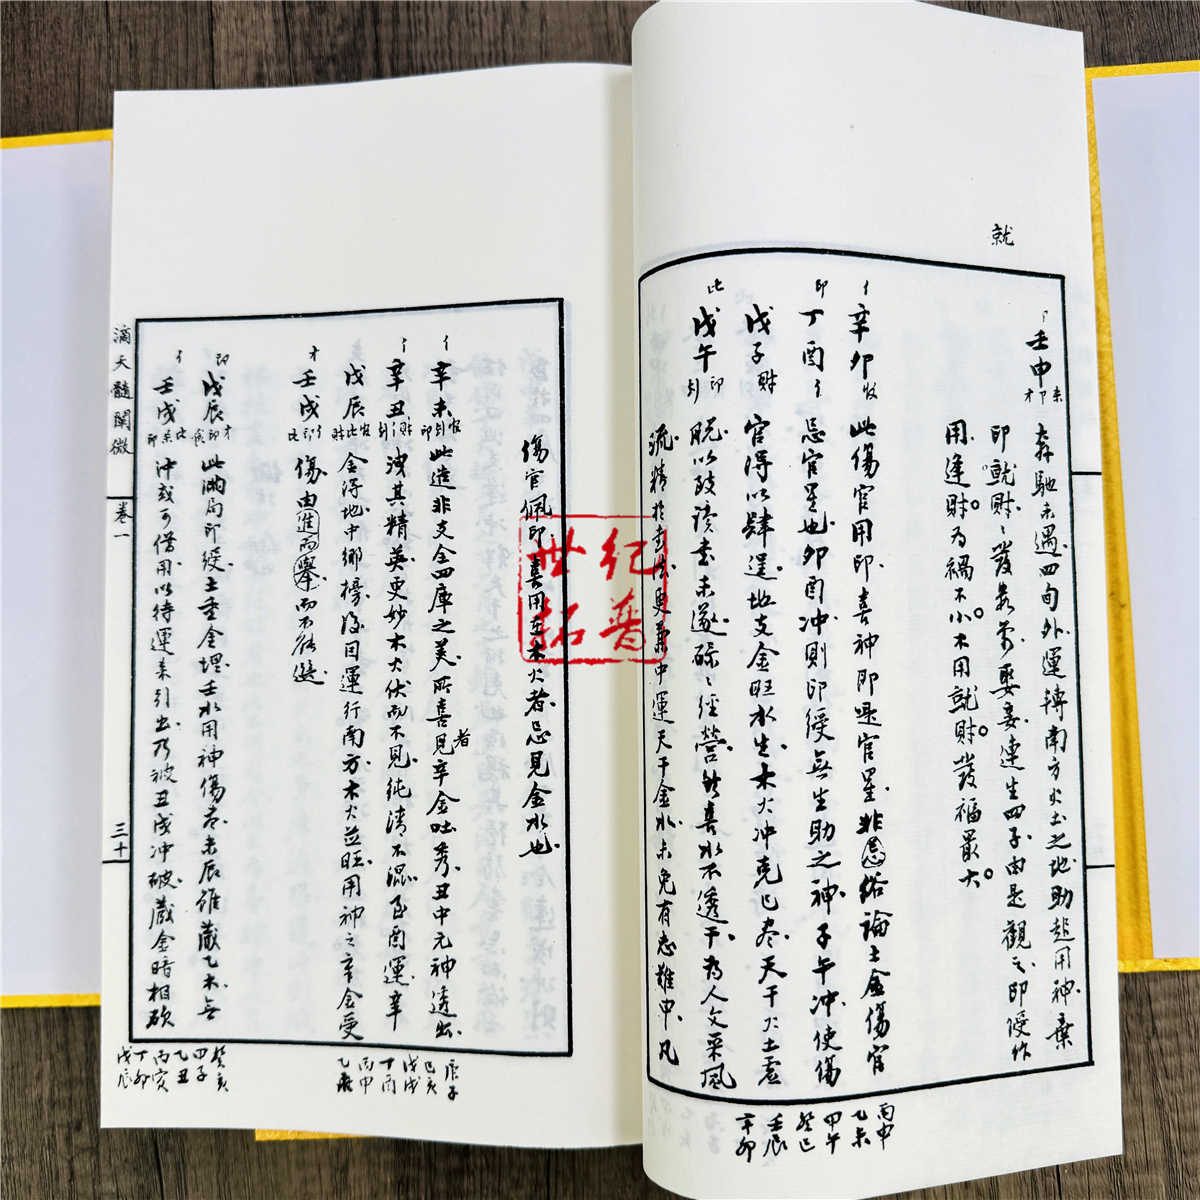 就
壬申 奔馳未遇四旬外運轉南方火土之地助起用神棄
印就財發數萬娶妾連生四子由是觀之印綬作
用逢財為禍不小木用就財發福最大
辛卯 此傷官用印喜神即是官星非忌俗論土金傷官
丁酉 忌官星也卯酉冲則印綬無生助之神子午冲使傷
戊子 官得以肆逞地支金旺水生木火冲克已盡天干火土虛
戊午 脫以致讀書未遂碌碌經營然喜水不透干為人文采風
流精於書法更兼中運天干金水未免有志難申凡
丙申
乙未
甲午
癸巳
壬辰
辛卯
傷官佩印喜用在木火者忌見金水也
辛未 此造非支全四庫之美所喜見者辛金吐秀丑中元神透出
辛丑 洩其精英更妙木火伏而不見純清不混至酉運辛
戊辰 金得地中鄉榜後因運行南方木火並旺用神之辛金受
壬戌 傷由進而舉而不能選
戊辰 此滿局印綬土重金埋壬水用神傷盡未辰雖藏乙木無
壬戌 冲或可借用以待運來引出乃被丑戌冲破藏金暗相砍
庚子
己亥
戊戌
丁酉
丙申
乙未
癸亥
甲子
乙丑
丙寅
丁卯
戊辰
滴天髓闡微 卷一 三十
世紀
拓普